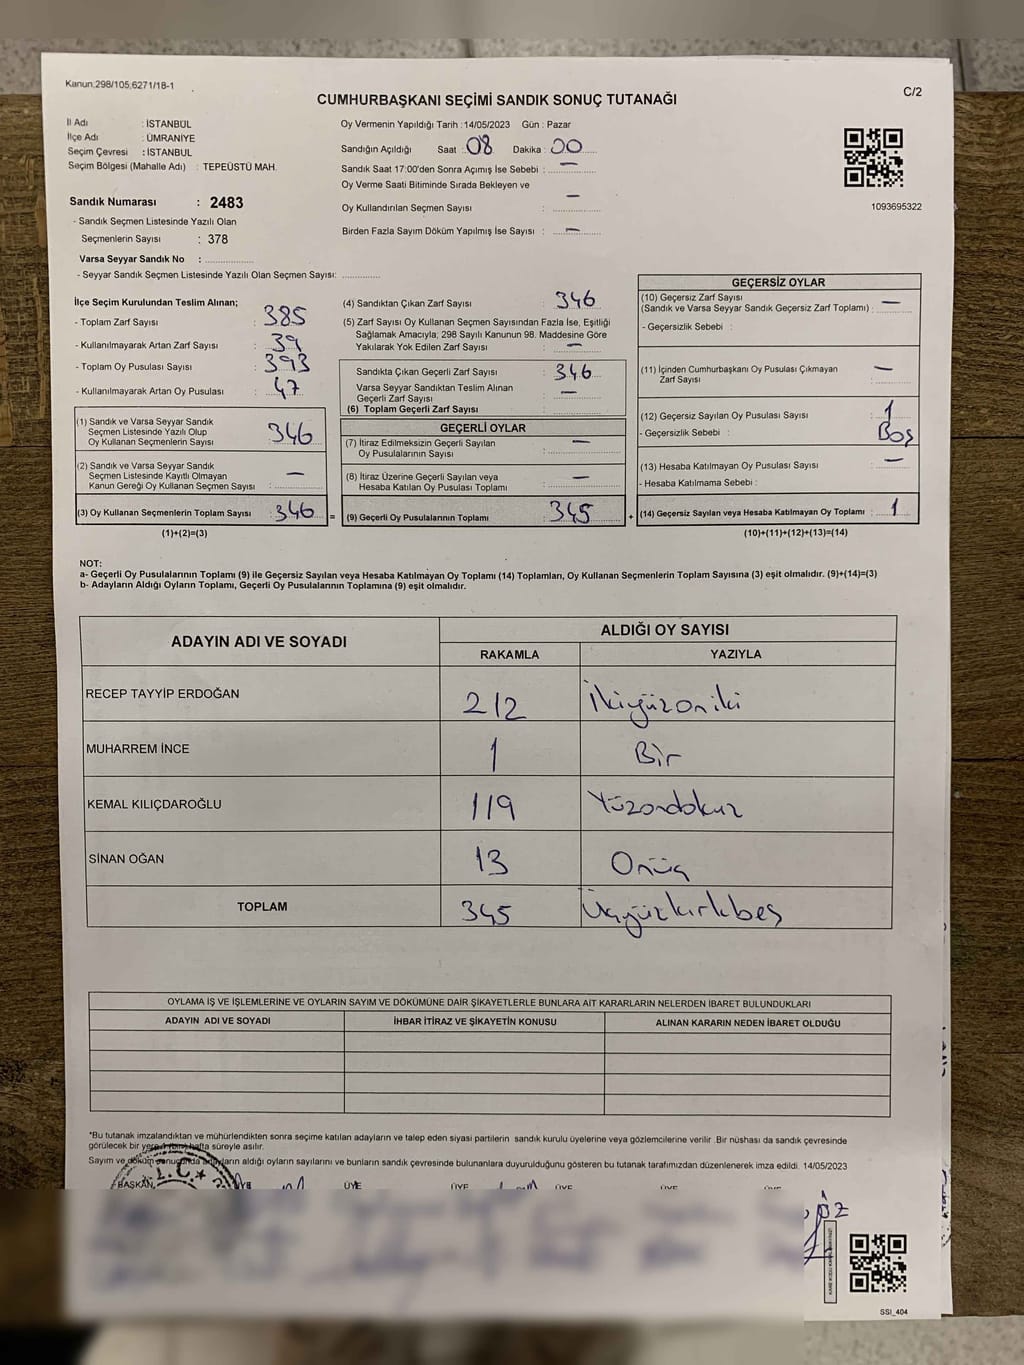 Kanun:298/105;6271/18-1
C/2
CUMHURBAŞKANI SEÇİMİ SANDIK SONUÇ TUTANAĞI
İl Adı : İSTANBUL
İlçe Adı : ÜMRANİYE
Seçim Çevresi : İSTANBUL
Seçim Bölgesi (Mahalle Adı) : TEPEÜSTÜ MAH.
Sandık Numarası : 2483
- Sandık Seçmen Listesinde Yazılı Olan
Seçmenlerin Sayısı : 378
Varsa Seyyar Sandık No :
- Seyyar Sandık Seçmen Listesinde Yazılı Olan Seçmen Sayısı:
Oy Vermenin Yapıldığı Tarih :14/05/2023 Gün : Pazar
Sandığın Açıldığı Saat : 08 Dakika : 00
Sandık Saat 17:00'den Sonra Açımış İse Sebebi : —
Oy Verme Saati Bitiminde Sırada Bekleyen ve
Oy Kullandırılan Seçmen Sayısı : —
Birden Fazla Sayım Döküm Yapılmış İse Sayısı : —
1093695322
İlçe Seçim Kurulundan Teslim Alınan;
- Toplam Zarf Sayısı : 385
- Kullanılmayarak Artan Zarf Sayısı : 39
- Toplam Oy Pusulası Sayısı : 393
- Kullanılmayarak Artan Oy Pusulası : 47
(1) Sandık ve Varsa Seyyar Sandık
Seçmen Listesinde Yazılı Olup
Oy Kullanan Seçmenlerin Sayısı : 346
(2) Sandık ve Varsa Seyyar Sandık
Seçmen Listesinde Kayıtlı Olmayan
Kanun Gereği Oy Kullanan Seçmen Sayısı : —
(3) Oy Kullanan Seçmenlerin Toplam Sayısı : 346
(1)+(2)=(3)
(4) Sandıktan Çıkan Zarf Sayısı : 346
(5) Zarf Sayısı Oy Kullanan Seçmen Sayısından Fazla İse, Eşitliği
Sağlamak Amacıyla; 298 Sayılı Kanunun 98. Maddesine Göre
Yakılarak Yok Edilen Zarf Sayısı : —
Sandıkta Çıkan Geçerli Zarf Sayısı : 346
Varsa Seyyar Sandıktan Teslim Alınan
Geçerli Zarf Sayısı : —
(6) Toplam Geçerli Zarf Sayısı :
GEÇERLİ OYLAR
(7) İtiraz Edilmeksizin Geçerli Sayılan
Oy Pusulalarının Sayısı : —
(8) İtiraz Üzerine Geçerli Sayılan veya
Hesaba Katılan Oy Pusulası Toplamı : —
= (9) Geçerli Oy Pusulalarının Toplamı : 345
GEÇERSİZ OYLAR
(10) Geçersiz Zarf Sayısı
(Sandık ve Varsa Seyyar Sandık Geçersiz Zarf Toplamı) : —
- Geçersizlik Sebebi :
(11) İçinden Cumhurbaşkanı Oy Pusulası Çıkmayan
Zarf Sayısı : —
(12) Geçersiz Sayılan Oy Pusulası Sayısı : 1
- Geçersizlik Sebebi : Boş
(13) Hesaba Katılmayan Oy Pusulası Sayısı : —
- Hesaba Katılmama Sebebi :
+ (14) Geçersiz Sayılan veya Hesaba Katılmayan Oy Toplamı : 1
(10)+(11)+(12)+(13)=(14)
NOT:
a- Geçerli Oy Pusulalarının Toplamı (9) ile Geçersiz Sayılan veya Hesaba Katılmayan Oy Toplamı (14) Toplamları, Oy Kullanan Seçmenlerin Toplam Sayısına (3) eşit olmalıdır. (9)+(14)=(3)
b- Adayların Aldığı Oyların Toplamı, Geçerli Oy Pusulalarının Toplamına (9) eşit olmalıdır.
ADAYIN ADI VE SOYADI
ALDIĞI OY SAYISI
RAKAMLA YAZIYLA
RECEP TAYYİP ERDOĞAN 212 İkiyüzoniki
MUHARREM İNCE 1 Bir
KEMAL KILIÇDAROĞLU 119 Yüzondokuz
SİNAN OĞAN 13 Onüç
TOPLAM 345 Üçyüzkırkbeş
OYLAMA İŞ VE İŞLEMLERİNE VE OYLARIN SAYIM VE DÖKÜMÜNE DAİR ŞİKAYETLERLE BUNLARA AİT KARARLARIN NELERDEN İBARET BULUNDUKLARI
ADAYIN ADI VE SOYADI İHBAR İTİRAZ VE ŞİKAYETİN KONUSU ALINAN KARARIN NEDEN İBARET OLDUĞU
*Bu tutanak imzalandıktan ve mühürlendikten sonra seçime katılan adayların ve talep eden siyasi partilerin sandık kurulu üyelerine veya gözlemcilerine verilir .Bir nüshası da sandık çevresinde
görülecek bir yere 1 (bir) hafta süreyle asılır.
Sayım ve döküm sonucunda adayların aldığı oyların sayılarını ve bunların sandık çevresinde bulunanlara duyurulduğunu gösteren bu tutanak tarafımızdan düzenlenerek imza edildi. 14/05/2023
BAŞKAN ÜYE ÜYE ÜYE ÜYE ÜYE ÜYE
T.C.
SSI_404